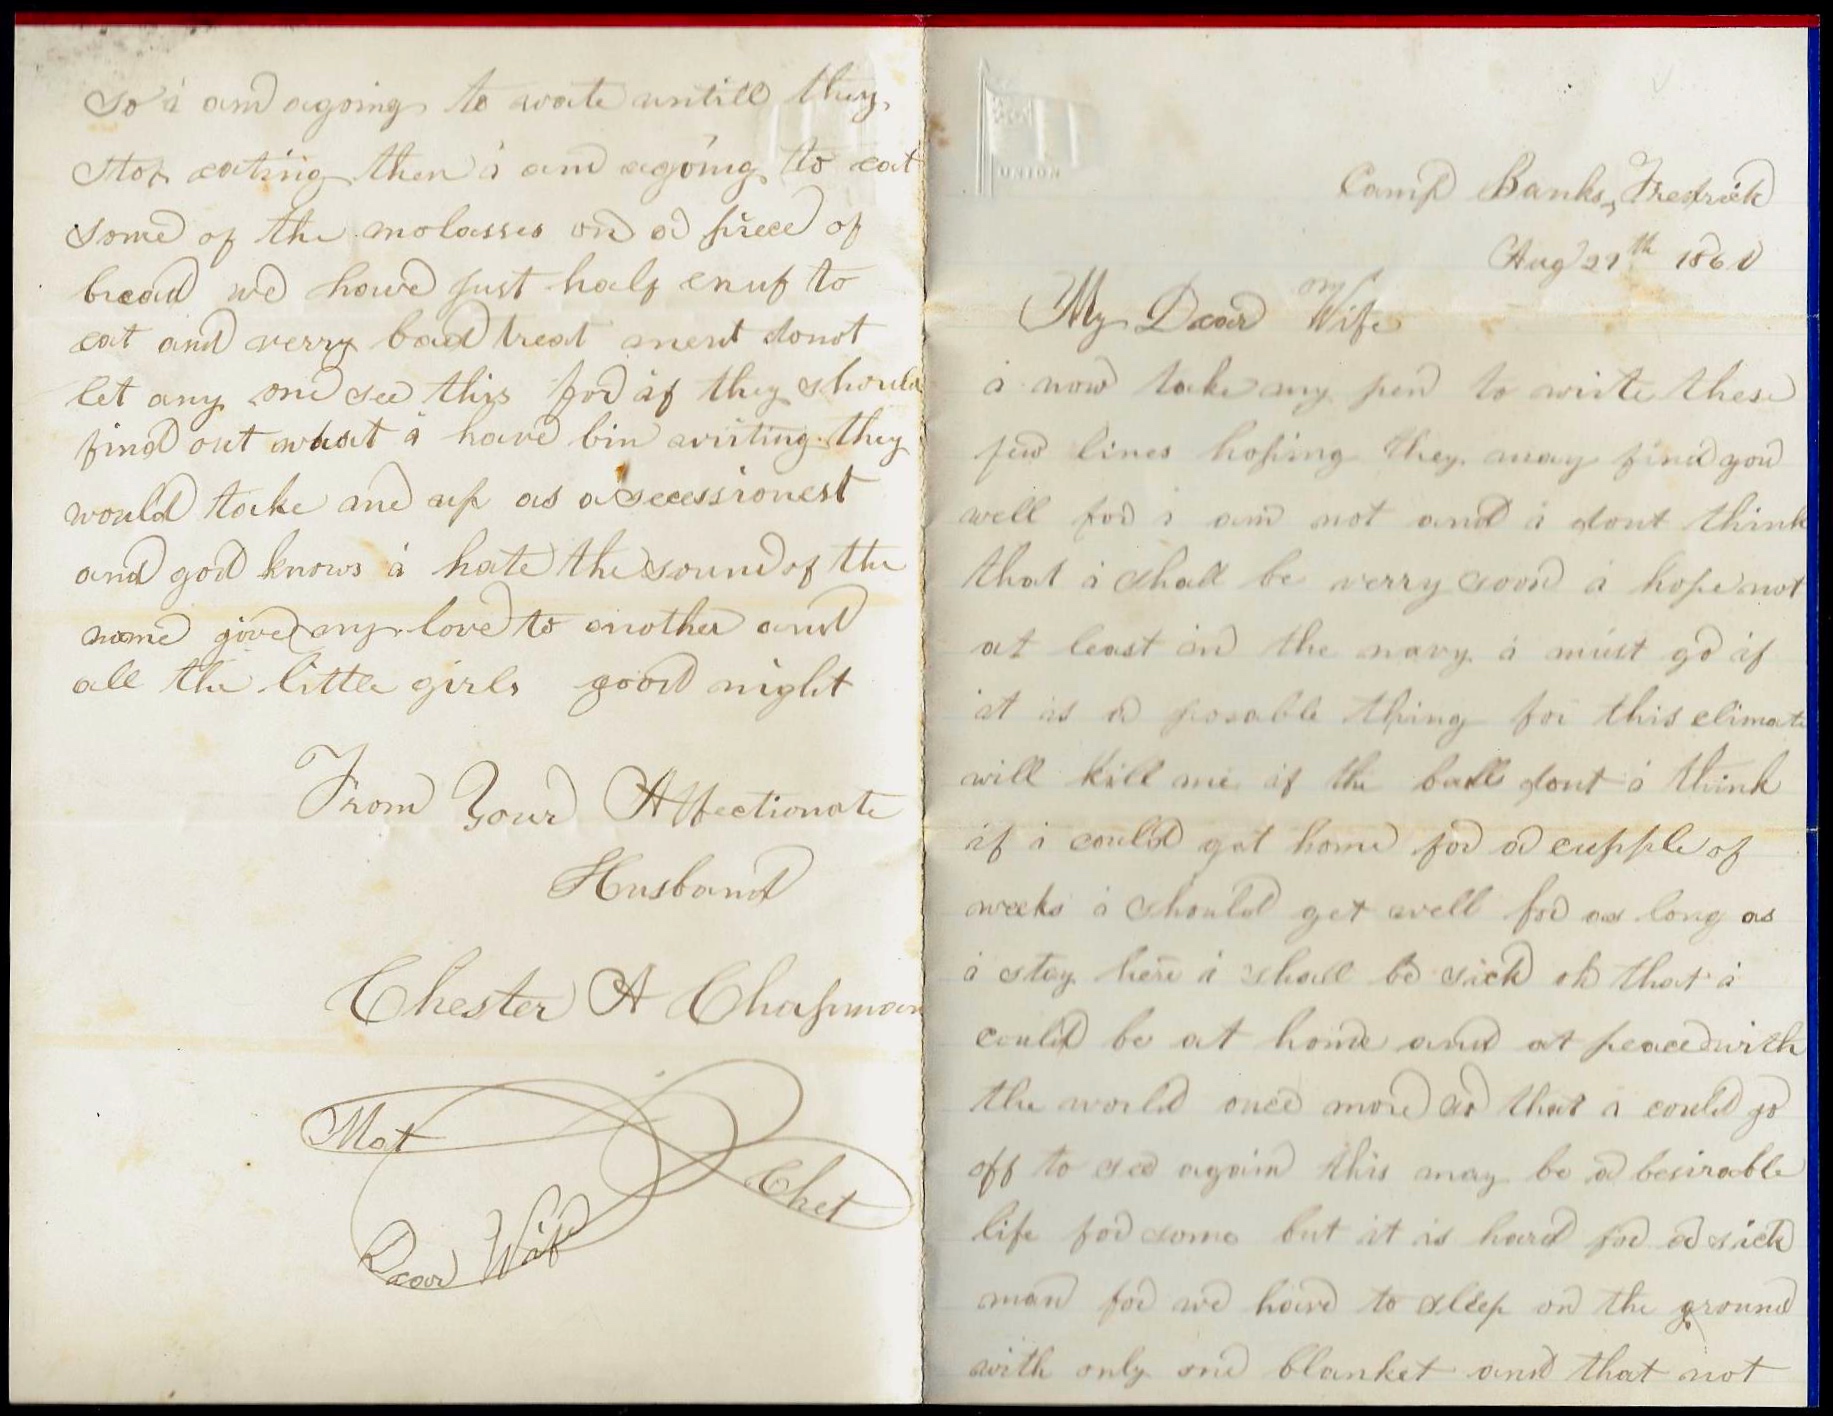 UNION
Camp Banks, Fredrick
Aug 27th 1861
My Dear Wife
i now take my pen to wirte these
few lines hoping they may find you
well for i am not and i dont think
that i shall be verry soon i hope not
at least in the navy i must go if
it is a posable thing for this climate
will kill me if the balls dont i think
if i could get home for a cupple of
weeks i should get well for as long as
i stay here i shall be sick oh that i
could be at home and at peace with
the world once more so that i could go
off to sea again this may be a besirable
life for some but it is hard for a sick
man for we have to sleep on the ground
with only one blanket and that not
so i am agoing to wate untill they
stop eating then i am agoing to eat
some of the molasses on a piece of
bread we have just half enuf to
eat and verry bad treat ment donot
let any one see this for if they should
find out what i have bin writing they
would take me up as a secessionest
and god knows i hate the sound of the
name give my love to mother and
all the little girls good night
From Your Affectionate
Husband
Chester A Chapman
Mat
Chet
Dear Wife